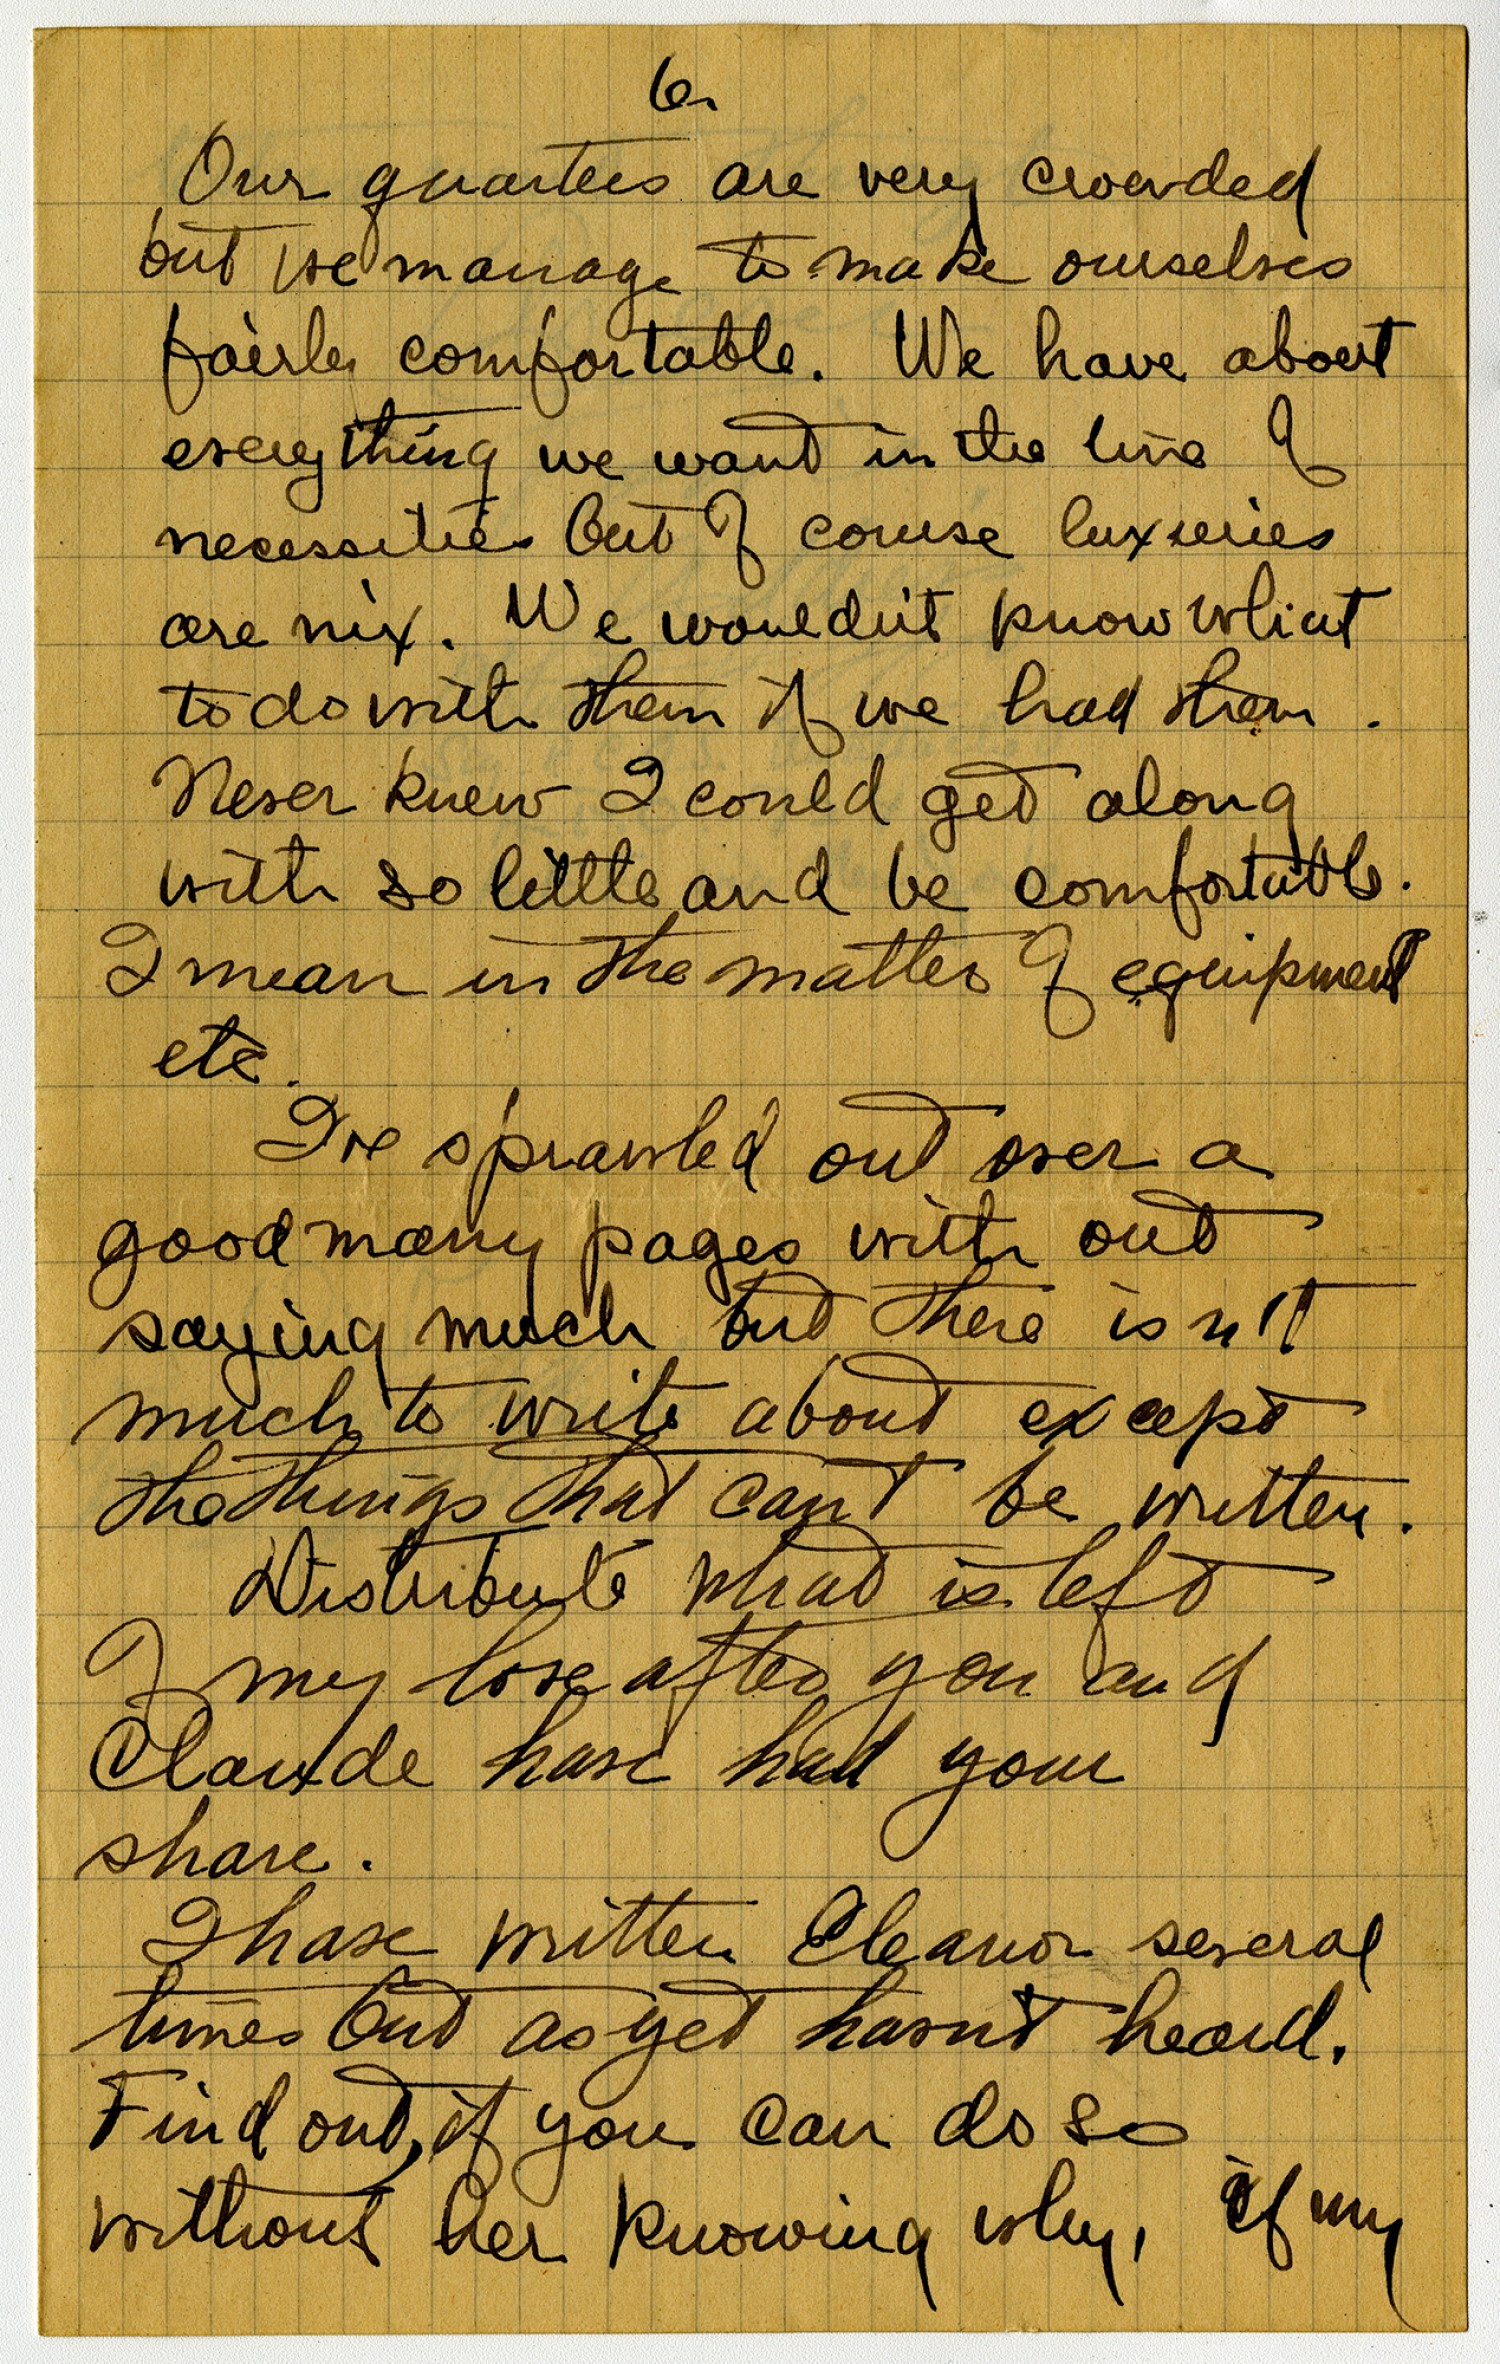 6.
Our quarters are very crowded
but we manage to make ourselves
fairly comfortable. We have about
everything we want in the line of
necessities but of course luxuries
are nix. We wouldn't know what
to do with them if we had them.
Never knew I could get along
with so little and be comfortable.
I mean in the matter of equipment
etc.
I've sprawled out over a
good many pages with out
saying much but there isn't
much to write about except
the things that can't be written.
Distribute what is left
of my love after you and
Claude have had your
share.
I have written Eleanor several
times but as yet hasn't heard.
Find out, if you can do so
without her knowing why, if my